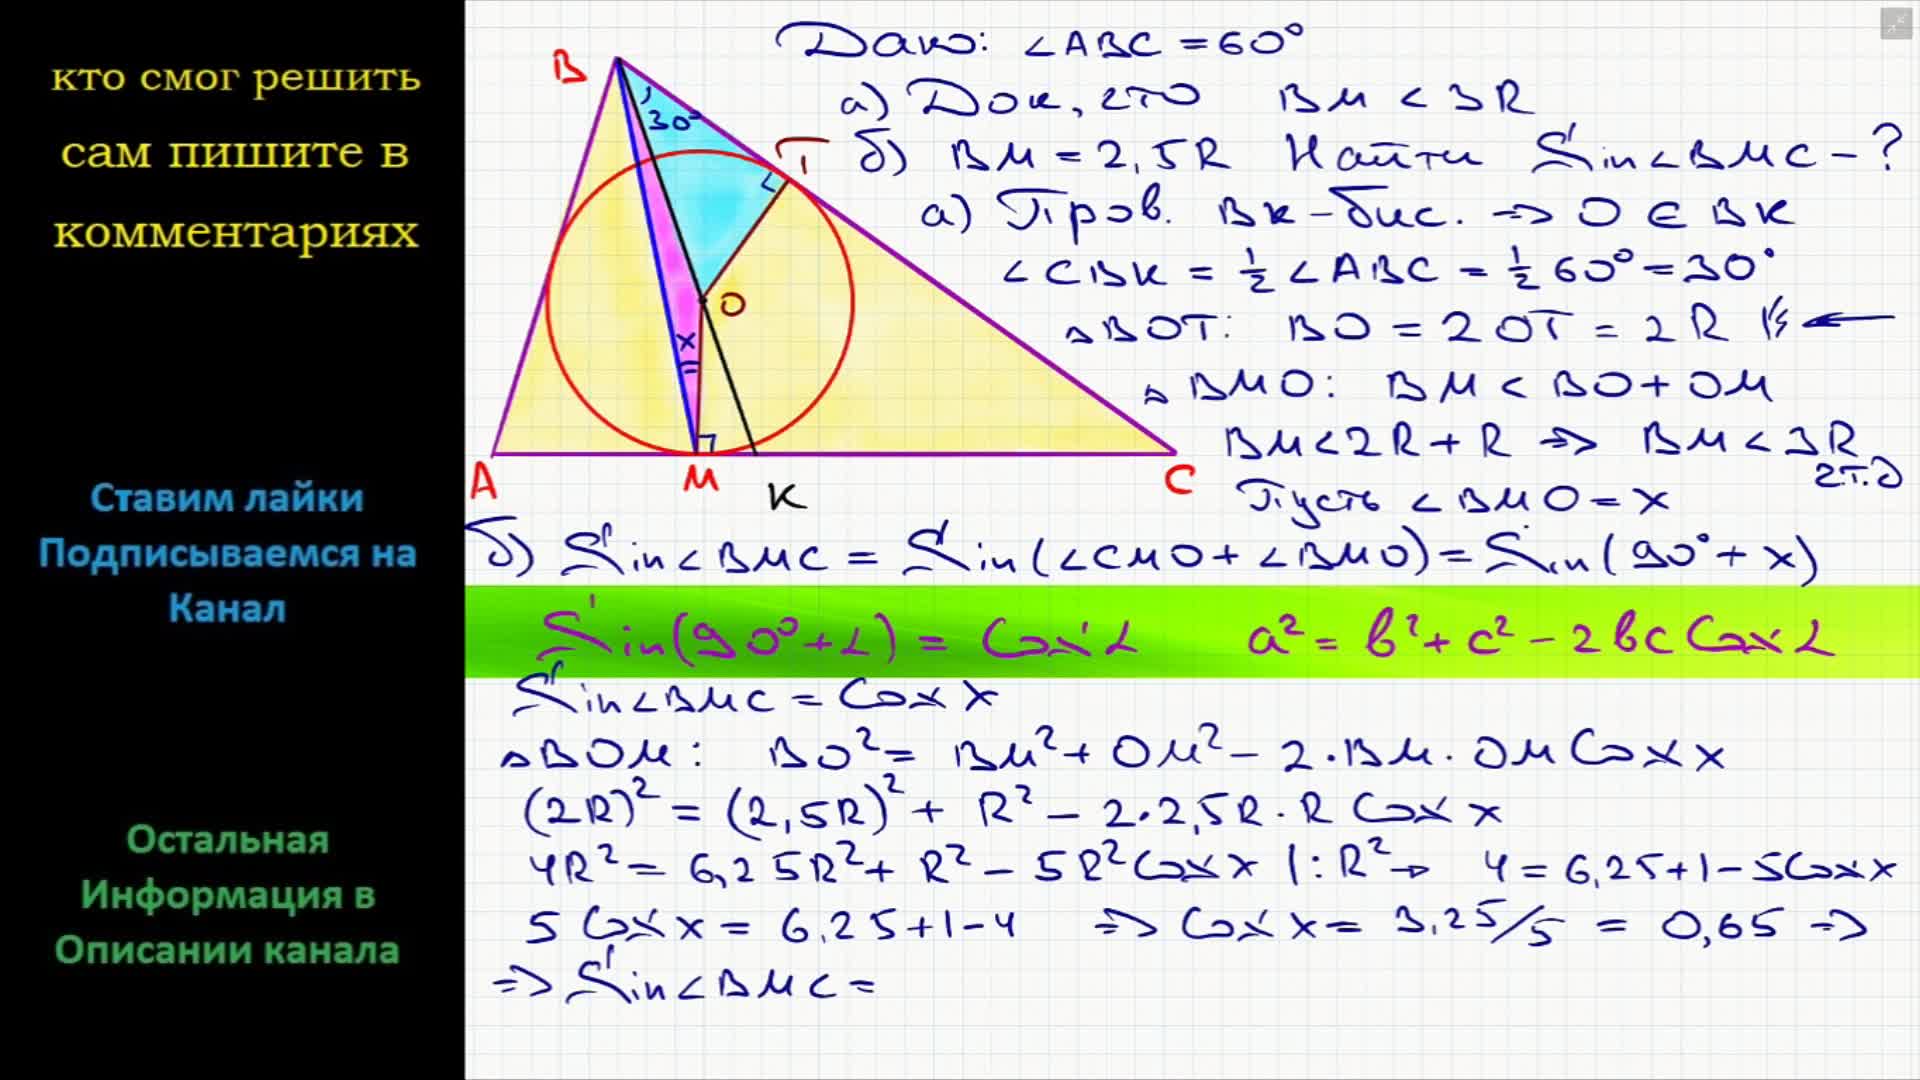 кто смог решить
сам пишите в
комментариях
Ставим лайки
Подписываемся на
Канал
Остальная
Информация в
Описании канала
B
30°
T
O
x
A
M
K
C
Дано: ∠ABC = 60°
а) Док, что BM < 3R
б) BM = 2,5R Найти Sin∠BMC - ?
а) Пров. BK - бис. => O ∈ BK
∠CBK = 1/2 ∠ABC = 1/2 60° = 30°
△BOT: BO = 2OT = 2R
△BMO: BM < BO + OM
BM < 2R + R => BM < 3R
ч.т.д
Пусть ∠BMO = x
б) Sin∠BMC = Sin(∠CMO + ∠BMO) = Sin(90° + x)
Sin(90° + α) = Cos α a² = b² + c² - 2bc Cos α
Sin∠BMC = Cos x
△BOM: BO² = BM² + OM² - 2·BM·OM Cos x
(2R)² = (2,5R)² + R² - 2·2,5R·R Cos x
4R² = 6,25R² + R² - 5R² Cos x |:R² → 4 = 6,25 + 1 - 5 Cos x
5 Cos x = 6,25 + 1 - 4 => Cos x = 3,25/5 = 0,65 =>
=> Sin∠BMC =